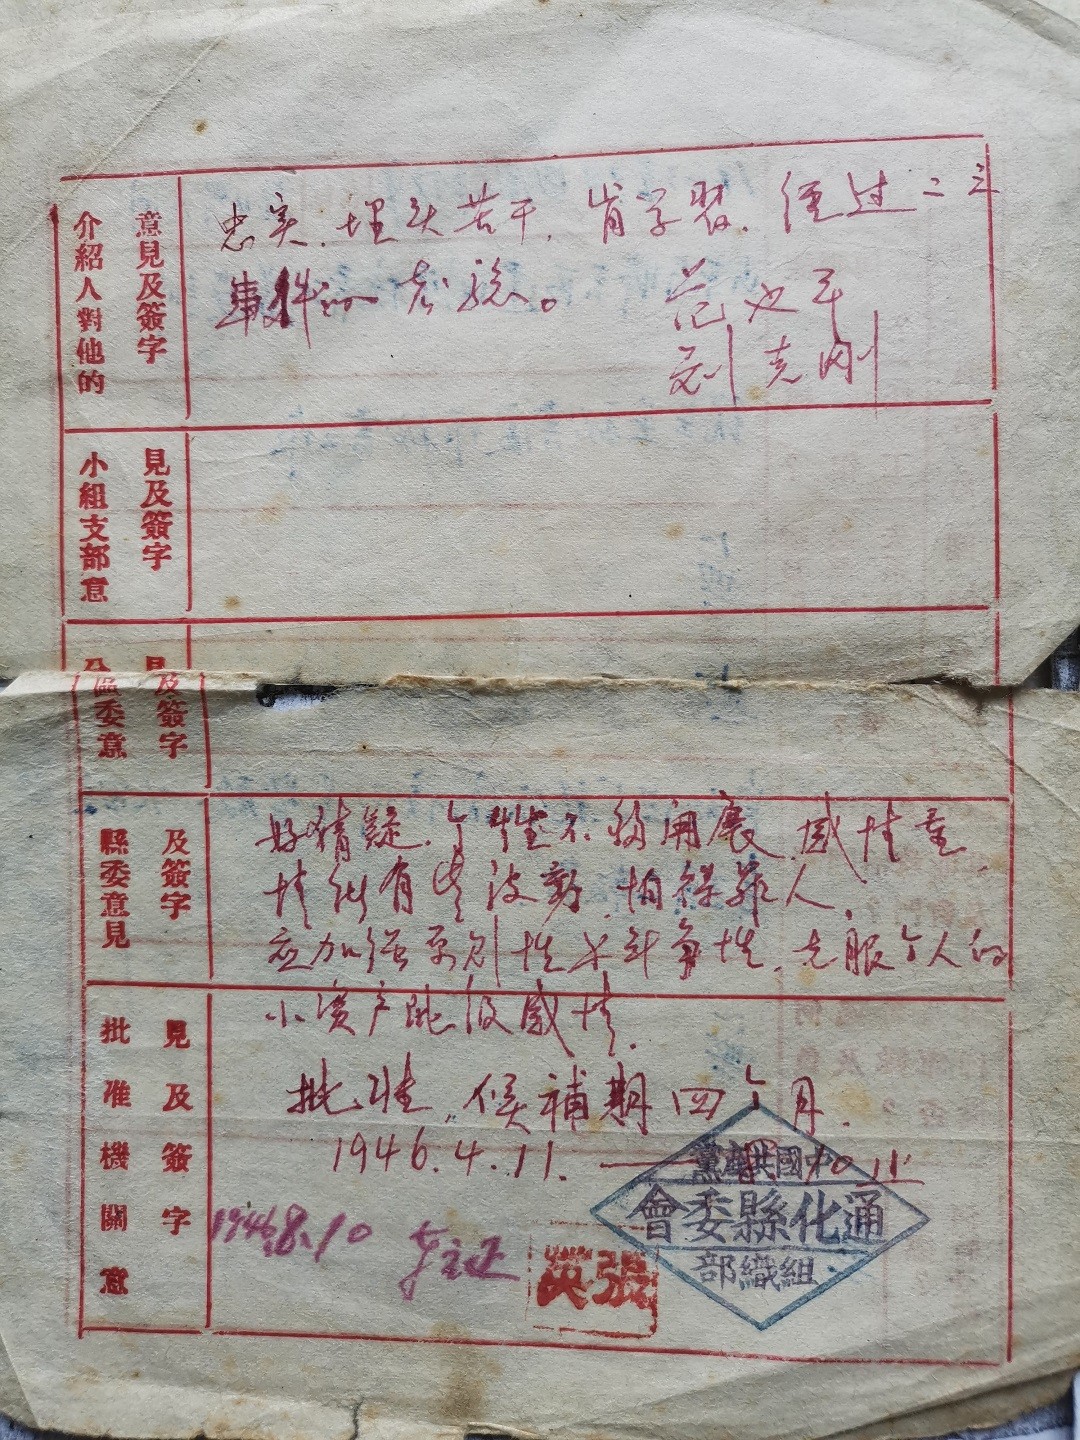 介紹人對他的
意見及簽字
忠实、埋头苦干，肯学習，经过二三
事件的考驗。
范
刘克刚
小組支部意
見及簽字
分區委意
見及簽字
縣委意見
及簽字
好猜疑，个性不够開展，感情重，
情绪有些波动，怕得罪人，
应加强原则性与斗争性，克服个人的
小资产阶级感情。
批准機關意
見及簽字
批准，候補期四个月。
1946.4.11.
1946.8.10
中國共產黨
通化縣委會
組織部
張